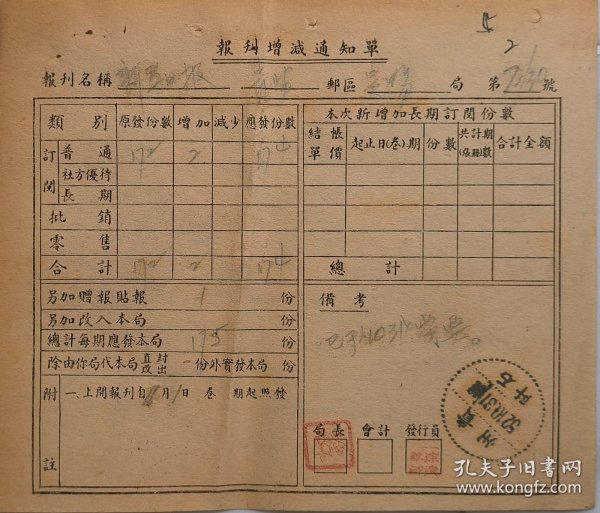 5
2
報刊增減通知單
報刊名稱 新黔日報 貴陽 郵區 局 第 號
類別 原發份數 增加 減少 應發份數
訂閱 普通 172 2 174
社方優待
長期
批銷
零售
合計 172 2 174
另加贈報貼報 1 份
另加改入本局 份
總計每期應發本局 175 份
除由你局代本局直封改出 一份外實發本局 份
附註 一、上開報刊自 月 1日 卷 期起照發
本次新增加長期訂閱份數
結帳單價 起止日(卷)期 份數 共計期(張冊)數 合計金額
總計
備考
局長 會計 發行員
貴州
52.10.31
孔夫子旧书网
www.kongfz.com